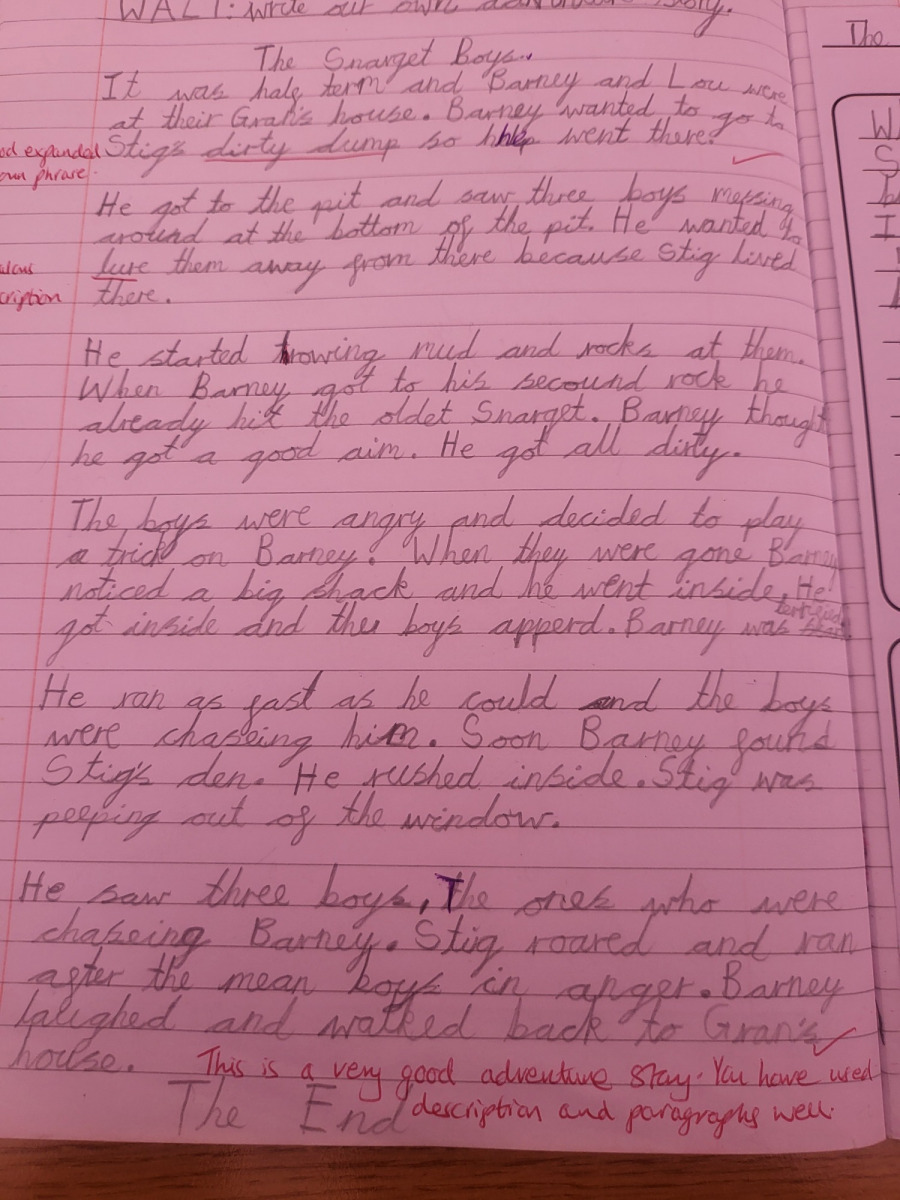 WALT: write our own adventure story.
The Snarget Boys.
It was half term and Barney and Lou were
at their Gran's house. Barney wanted to go to
Stig's dirty dump so he went there.
od expanded
oun phrase.
He got to the pit and saw three boys messing
around at the bottom of the pit. He wanted to
lure them away from there because Stig lived
there.
cription
He started trowing mud and rocks at them.
When Barney got to his secound rock he
already hit the oldet Snarget. Barney thought
he got a good aim. He got all dirty.
The boys were angry and decided to play
a trick on Barney. When they were gone Barney
noticed a big shack and he went inside. He
got inside and the boys apperd. Barney was terrified
He ran as fast as he could and the boys
were chaseing him. Soon Barney found
Stig's den. He rushed inside. Stig was
peeping out of the window.
He saw three boys, The ones who were
chaseing Barney. Stig roared and ran
after the mean boys in anger. Barney
laughed and walked back to Gran's
house.
This is a very good adventure story. You have used
description and paragraphs well.
The End
The